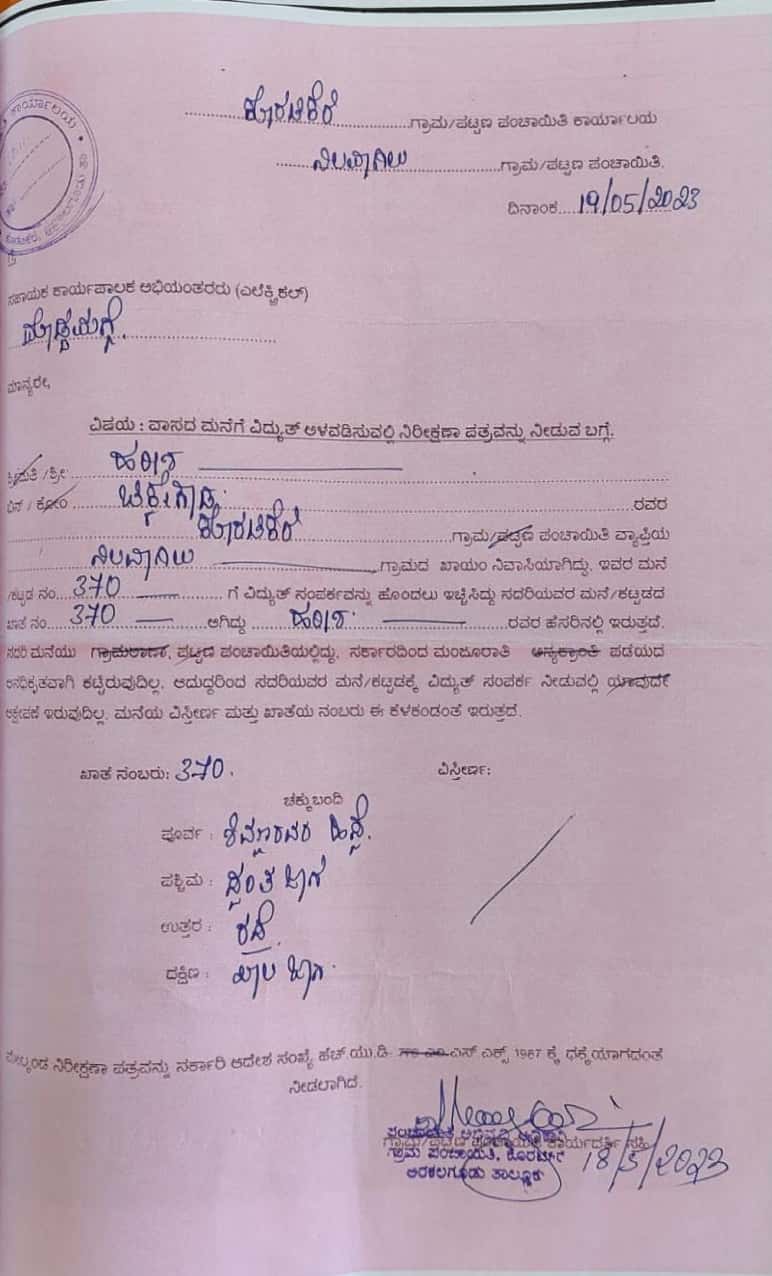 ಕಾರ್ಯಾಲಯ
ಕೊರಟಿಕೆರೆ ಗ್ರಾಮ/ಪಟ್ಟಣ ಪಂಚಾಯಿತಿ ಕಾರ್ಯಾಲಯ
ನಿಲವಾಗಿಲು ಗ್ರಾಮ/ಪಟ್ಟಣ ಪಂಚಾಯಿತಿ.
ದಿನಾಂಕ 19/05/2023
ಸಹಾಯಕ ಕಾರ್ಯಪಾಲಕ ಅಭಿಯಂತರರು (ಎಲೆಕ್ಟ್ರಿಕಲ್)
ದೊಡ್ಡಮಗ್ಗೆ.
ಮಾನ್ಯರೇ,
ವಿಷಯ : ವಾಸದ ಮನೆಗೆ ವಿದ್ಯುತ್ ಅಳವಡಿಸುವಲ್ಲಿ ನಿರೀಕ್ಷಣಾ ಪತ್ರವನ್ನು ನೀಡುವ ಬಗ್ಗೆ.
ಶ್ರೀಮತಿ /ಶ್ರೀ ಹರೀಶ
ಬಿನ್ / ಕೋಂ ಚಿಕ್ಕೇಗೌಡ ರವರ
ಕೊರಟಿಕೆರೆ ಗ್ರಾಮ/ಪಟ್ಟಣ ಪಂಚಾಯಿತಿ ವ್ಯಾಪ್ತಿಯ
ನಿಲವಾಗಿಲು ಗ್ರಾಮದ ಖಾಯಂ ನಿವಾಸಿಯಾಗಿದ್ದು, ಇವರ ಮನೆ
/ಕಟ್ಟಡ ನಂ. 370 ಗೆ ವಿದ್ಯುತ್ ಸಂಪರ್ಕವನ್ನು ಹೊಂದಲು ಇಚ್ಛಿಸಿದ್ದು ಸದರಿಯವರ ಮನೆ/ಕಟ್ಟಡದ
ಖಾತೆ ನಂ. 370 ಆಗಿದ್ದು ಹರೀಶ. ರವರ ಹೆಸರಿನಲ್ಲಿ ಇರುತ್ತದೆ.
ಸದರಿ ಮನೆಯು ಗ್ರಾಮಠಾಣಾ, ಪಟ್ಟಣ ಪಂಚಾಯಿತಿಯಲ್ಲಿದ್ದು, ಸರ್ಕಾರದಿಂದ ಮಂಜೂರಾತಿ ಅನ್ಯಕ್ರಾಂತಿ ಪಡೆಯದ
ಅನಧಿಕೃತವಾಗಿ ಕಟ್ಟಿರುವುದಿಲ್ಲ, ಆದುದ್ದರಿಂದ ಸದರಿಯವರ ಮನೆ/ಕಟ್ಟಡಕ್ಕೆ ವಿದ್ಯುತ್ ಸಂಪರ್ಕ ನೀಡುವಲ್ಲಿ ಯಾವುದೇ
ಆಕ್ಷೇಪಣೆ ಇರುವುದಿಲ್ಲ. ಮನೆಯ ವಿಸ್ತೀರ್ಣ ಮತ್ತು ಖಾತೆಯ ನಂಬರು ಈ ಕೆಳಕಂಡಂತೆ ಇರುತ್ತದೆ.
ಖಾತೆ ನಂಬರು: 370. ವಿಸ್ತೀರ್ಣ:
ಚಕ್ಕುಬಂದಿ
ಪೂರ್ವ : ಶಿವಣ್ಣರವರ ಹಿತ್ಲು.
ಪಶ್ಚಿಮ : ಸ್ವಂತ ಜಾಗ
ಉತ್ತರ : ರಸ್ತೆ.
ದಕ್ಷಿಣ : ಖಾಲಿ ಜಾಗ.
ಮೇಲ್ಕಂಡ ನಿರೀಕ್ಷಣಾ ಪತ್ರವನ್ನು ಸರ್ಕಾರಿ ಆದೇಶ ಸಂಖ್ಯೆ ಹೆಚ್.ಯು.ಡಿ. ಎಸ್ ಎಕ್ಸ್ 1987 ಕ್ಕೆ ಧಕ್ಕೆಯಾಗದಂತೆ
ನೀಡಲಾಗಿದೆ.
ಗ್ರಾಮ/ಪಟ್ಟಣ ಪಂಚಾಯಿತಿ ಕಾರ್ಯದರ್ಶಿ ಸಹಿ
ಪಂಚಾಯಿತಿ ಅಭಿವೃದ್ಧಿ ಅಧಿಕಾರಿ
ಗ್ರಾಮ ಪಂಚಾಯಿತಿ, ಕೊರಟಿಕೆರೆ
18/5/2023
ಅರಕಲಗೂಡು ತಾಲ್ಲೂಕು